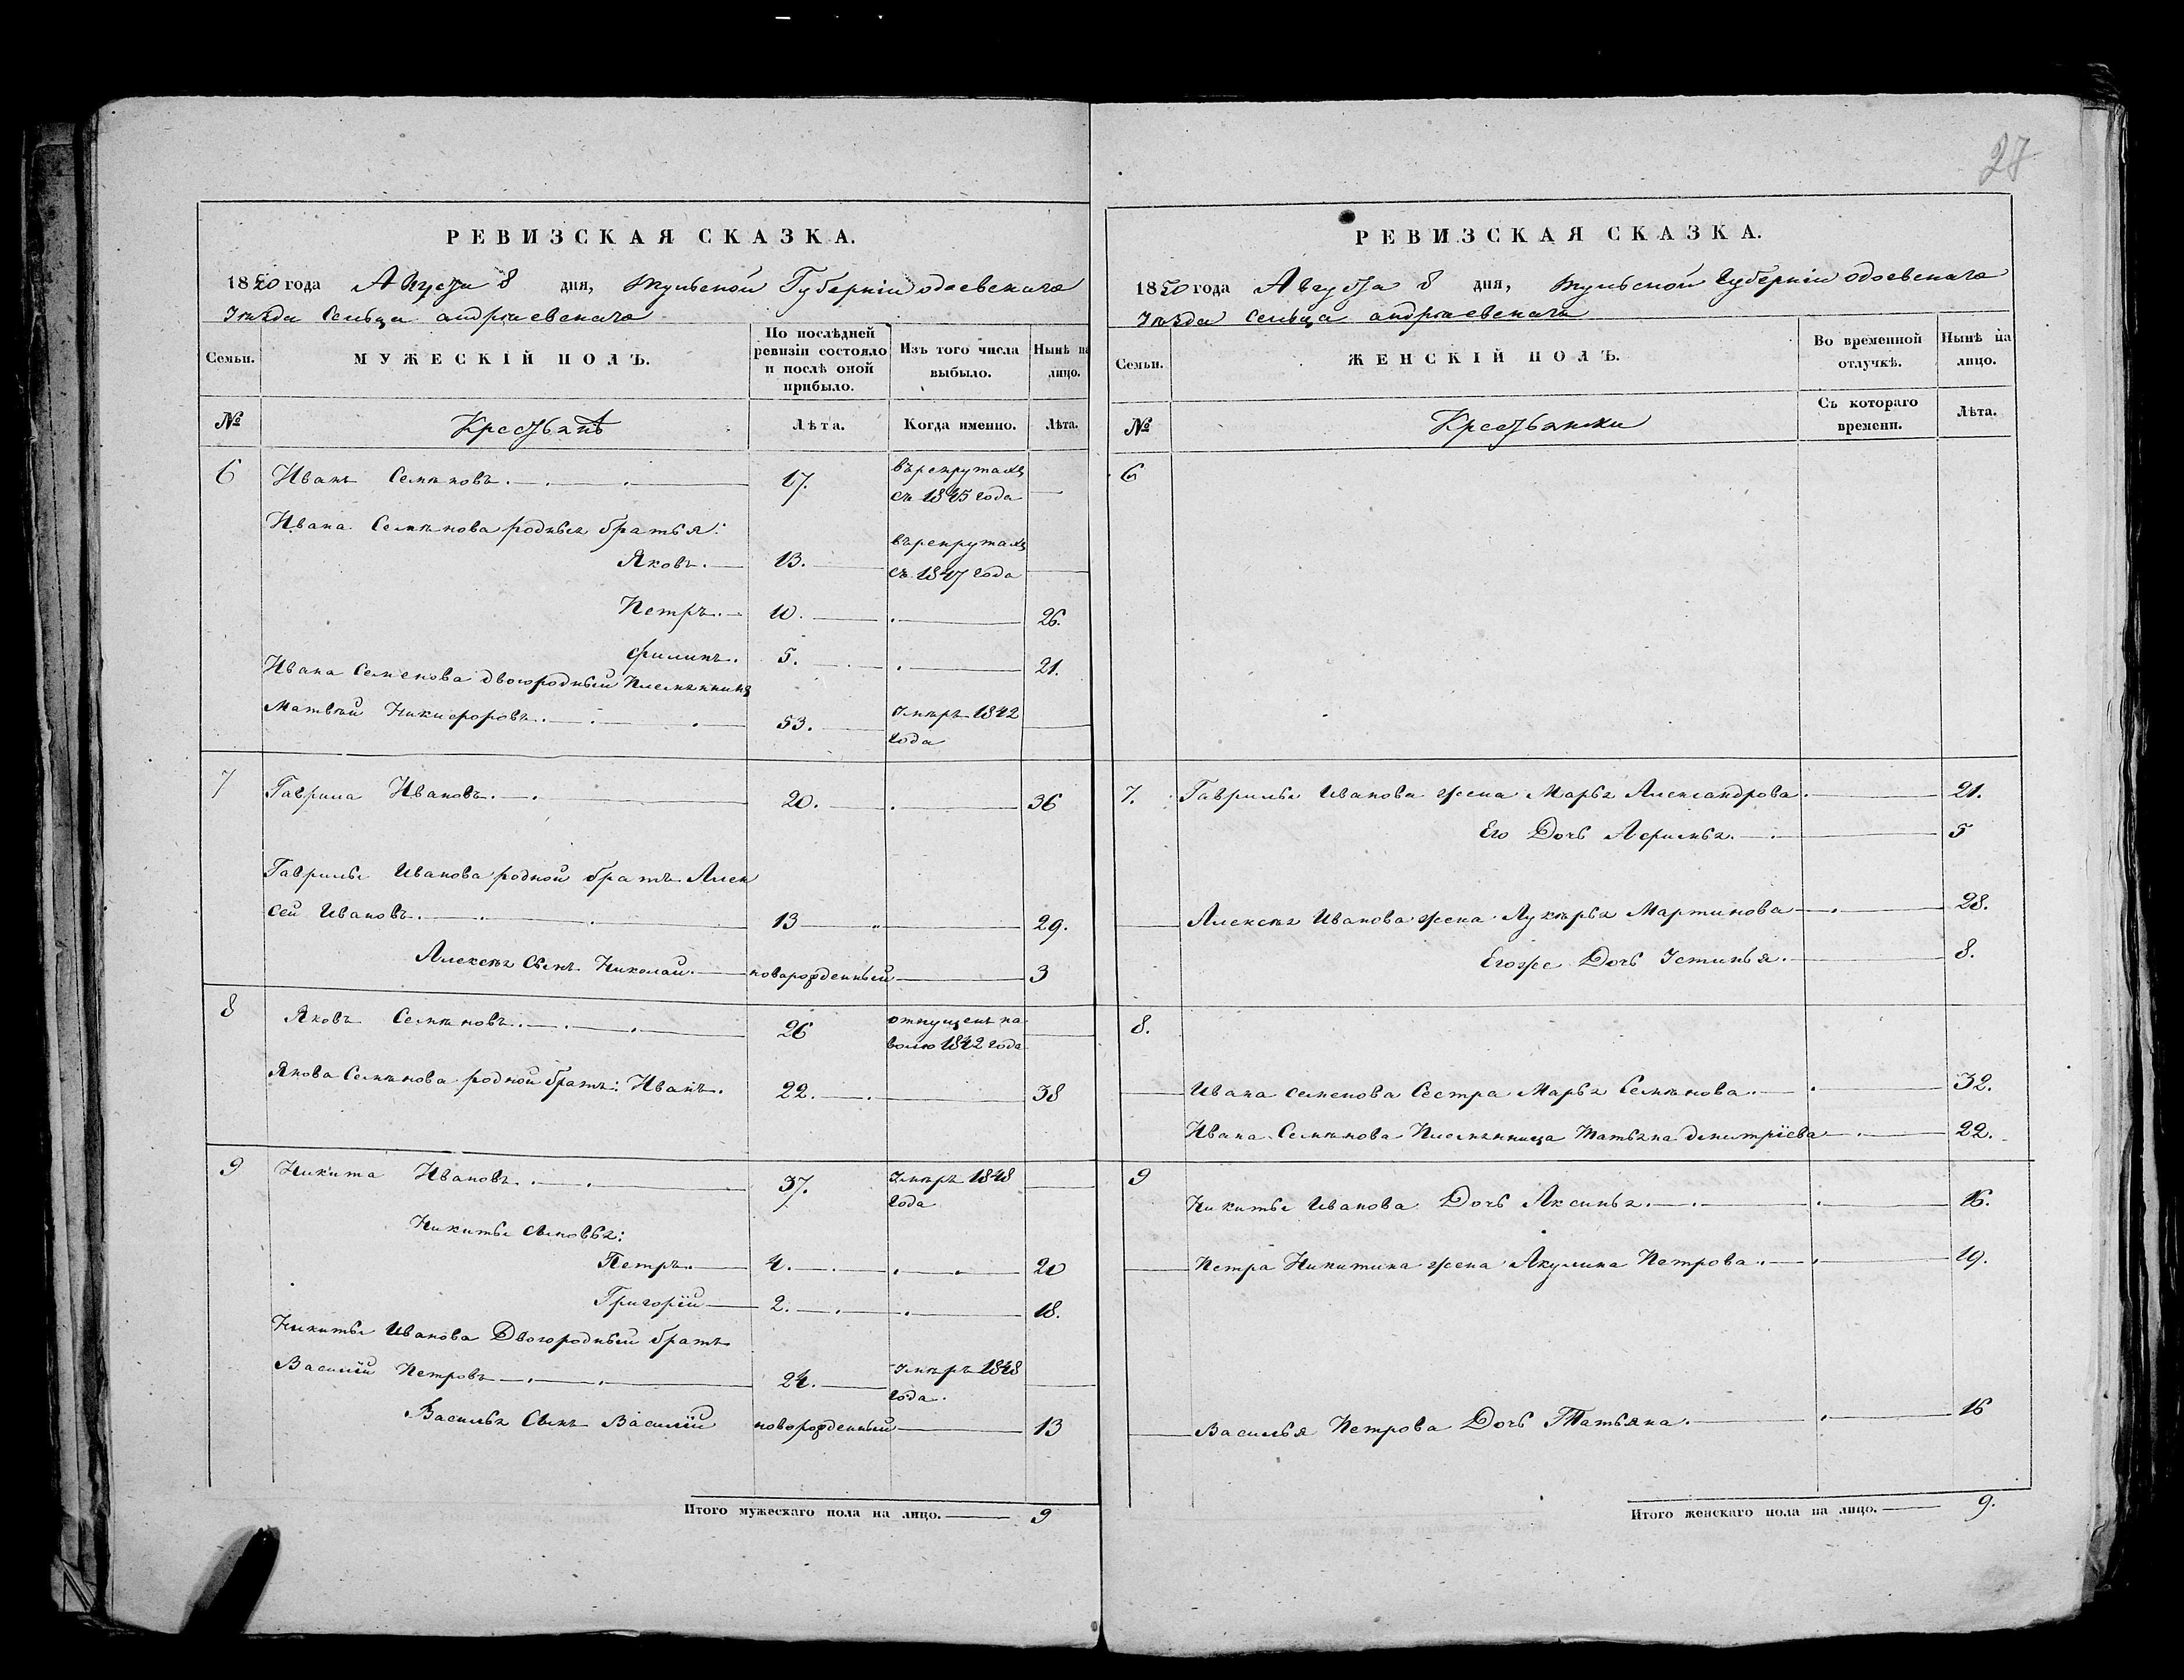 27
РЕВИЗСКАЯ СКАЗКА.
1850 года Августа 8 дня, Тульской Губернiи одоевскаго
Уѣзда Сельца андрѣевскаго
Семьи.
МУЖЕСКІЙ ПОЛЪ.
По послѣдней ревизіи состояло и послѣ оной прибыло.
Изъ того числа выбыло.
Нынѣ на лицо.
№
Крестьянѣ
Лѣта.
Когда именно.
Лѣта.
6 Иванъ Семѣновъ. 17. въ рекрутахъ
съ 1845 года
Ивана Семѣнова родныя братья:
Яковъ. 13. въ рекрутахъ
съ 1847 года
Петръ. 10. 26.
Филипъ. 5. 21.
Ивана Семенова двоюродный Племянникъ
Матвѣй Никифоровъ. 53. Умѣръ 1842
года
7 Гаврила Ивановъ. 20. 36
Гаврилы Иванова родной братъ Алек
сей Ивановъ. 13 29.
Алексѣя Сынъ Николай. новарожденный 3
8 Яковъ Семѣновъ. 26 отпущенъ на
волю 1842 года
Якова Семѣнова родной братъ: Иванъ. 22. 38
9 Никита Ивановъ. 37. Умѣръ 1848
года
Никиты Сыновья:
Петръ. 4. 20
Григорій 2. 18.
Никиты Иванова Двоюродный братъ
Василій Петровъ 24. Умѣръ 1848
года.
Василья Сынъ Василій новорожденный 13
Итого мужескаго пола на лицо. 9
РЕВИЗСКАЯ СКАЗКА.
1850 года Августа 8 дня, Тульской Губернiи одоевскаго
Уѣзда Сельца андрѣевскаго
Семьи.
ЖЕНСКІЙ ПОЛЪ.
Во временной отлучкѣ.
Нынѣ на лицо.
№
Крестьянки
Съ котораго времени.
Лѣта.
6
7. Гаврилы Иванова жена Марья Александрова. 21.
Его Дочь Афимья. 5
Алексѣя Иванова жена Лукѣрья Мартинова 28.
Егоже Дочь Устинья. 8.
8.
Ивана семенова Сестра Марья Семѣнова. 32.
Ивана Семѣнова Племянница Татьяна дмитріева 22.
9
Никиты Иванова Дочь Аксинья. 16.
Петра Никитина жена Акулина Петрова. 19.
Василья Петрова Дочь Татьяна. 16
Итого женскаго пола на лицо. 9.